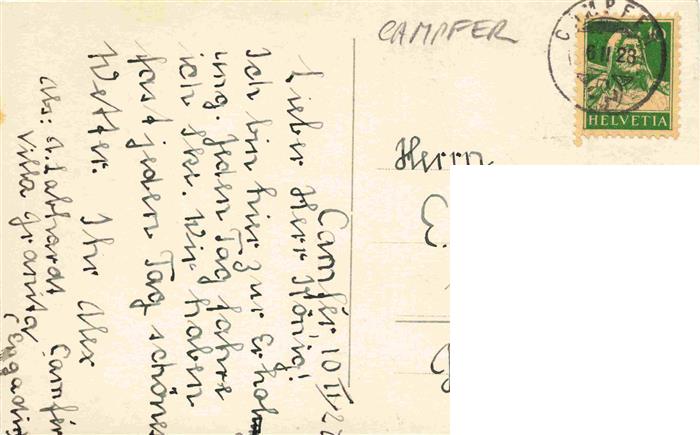 CAMPFER
CAMPFER
HELVETIA
Herrn
Camfér 10 II/2
Lieber Herr König!
Ich bin hier zur Erhol
ung. Jeden Tag fahre
ich ski. Wir haben
fast jeden Tag schönes
Wetter. Ihr Alex
Abs: A. Labhardt Camfér
Villa Granita (Engadin